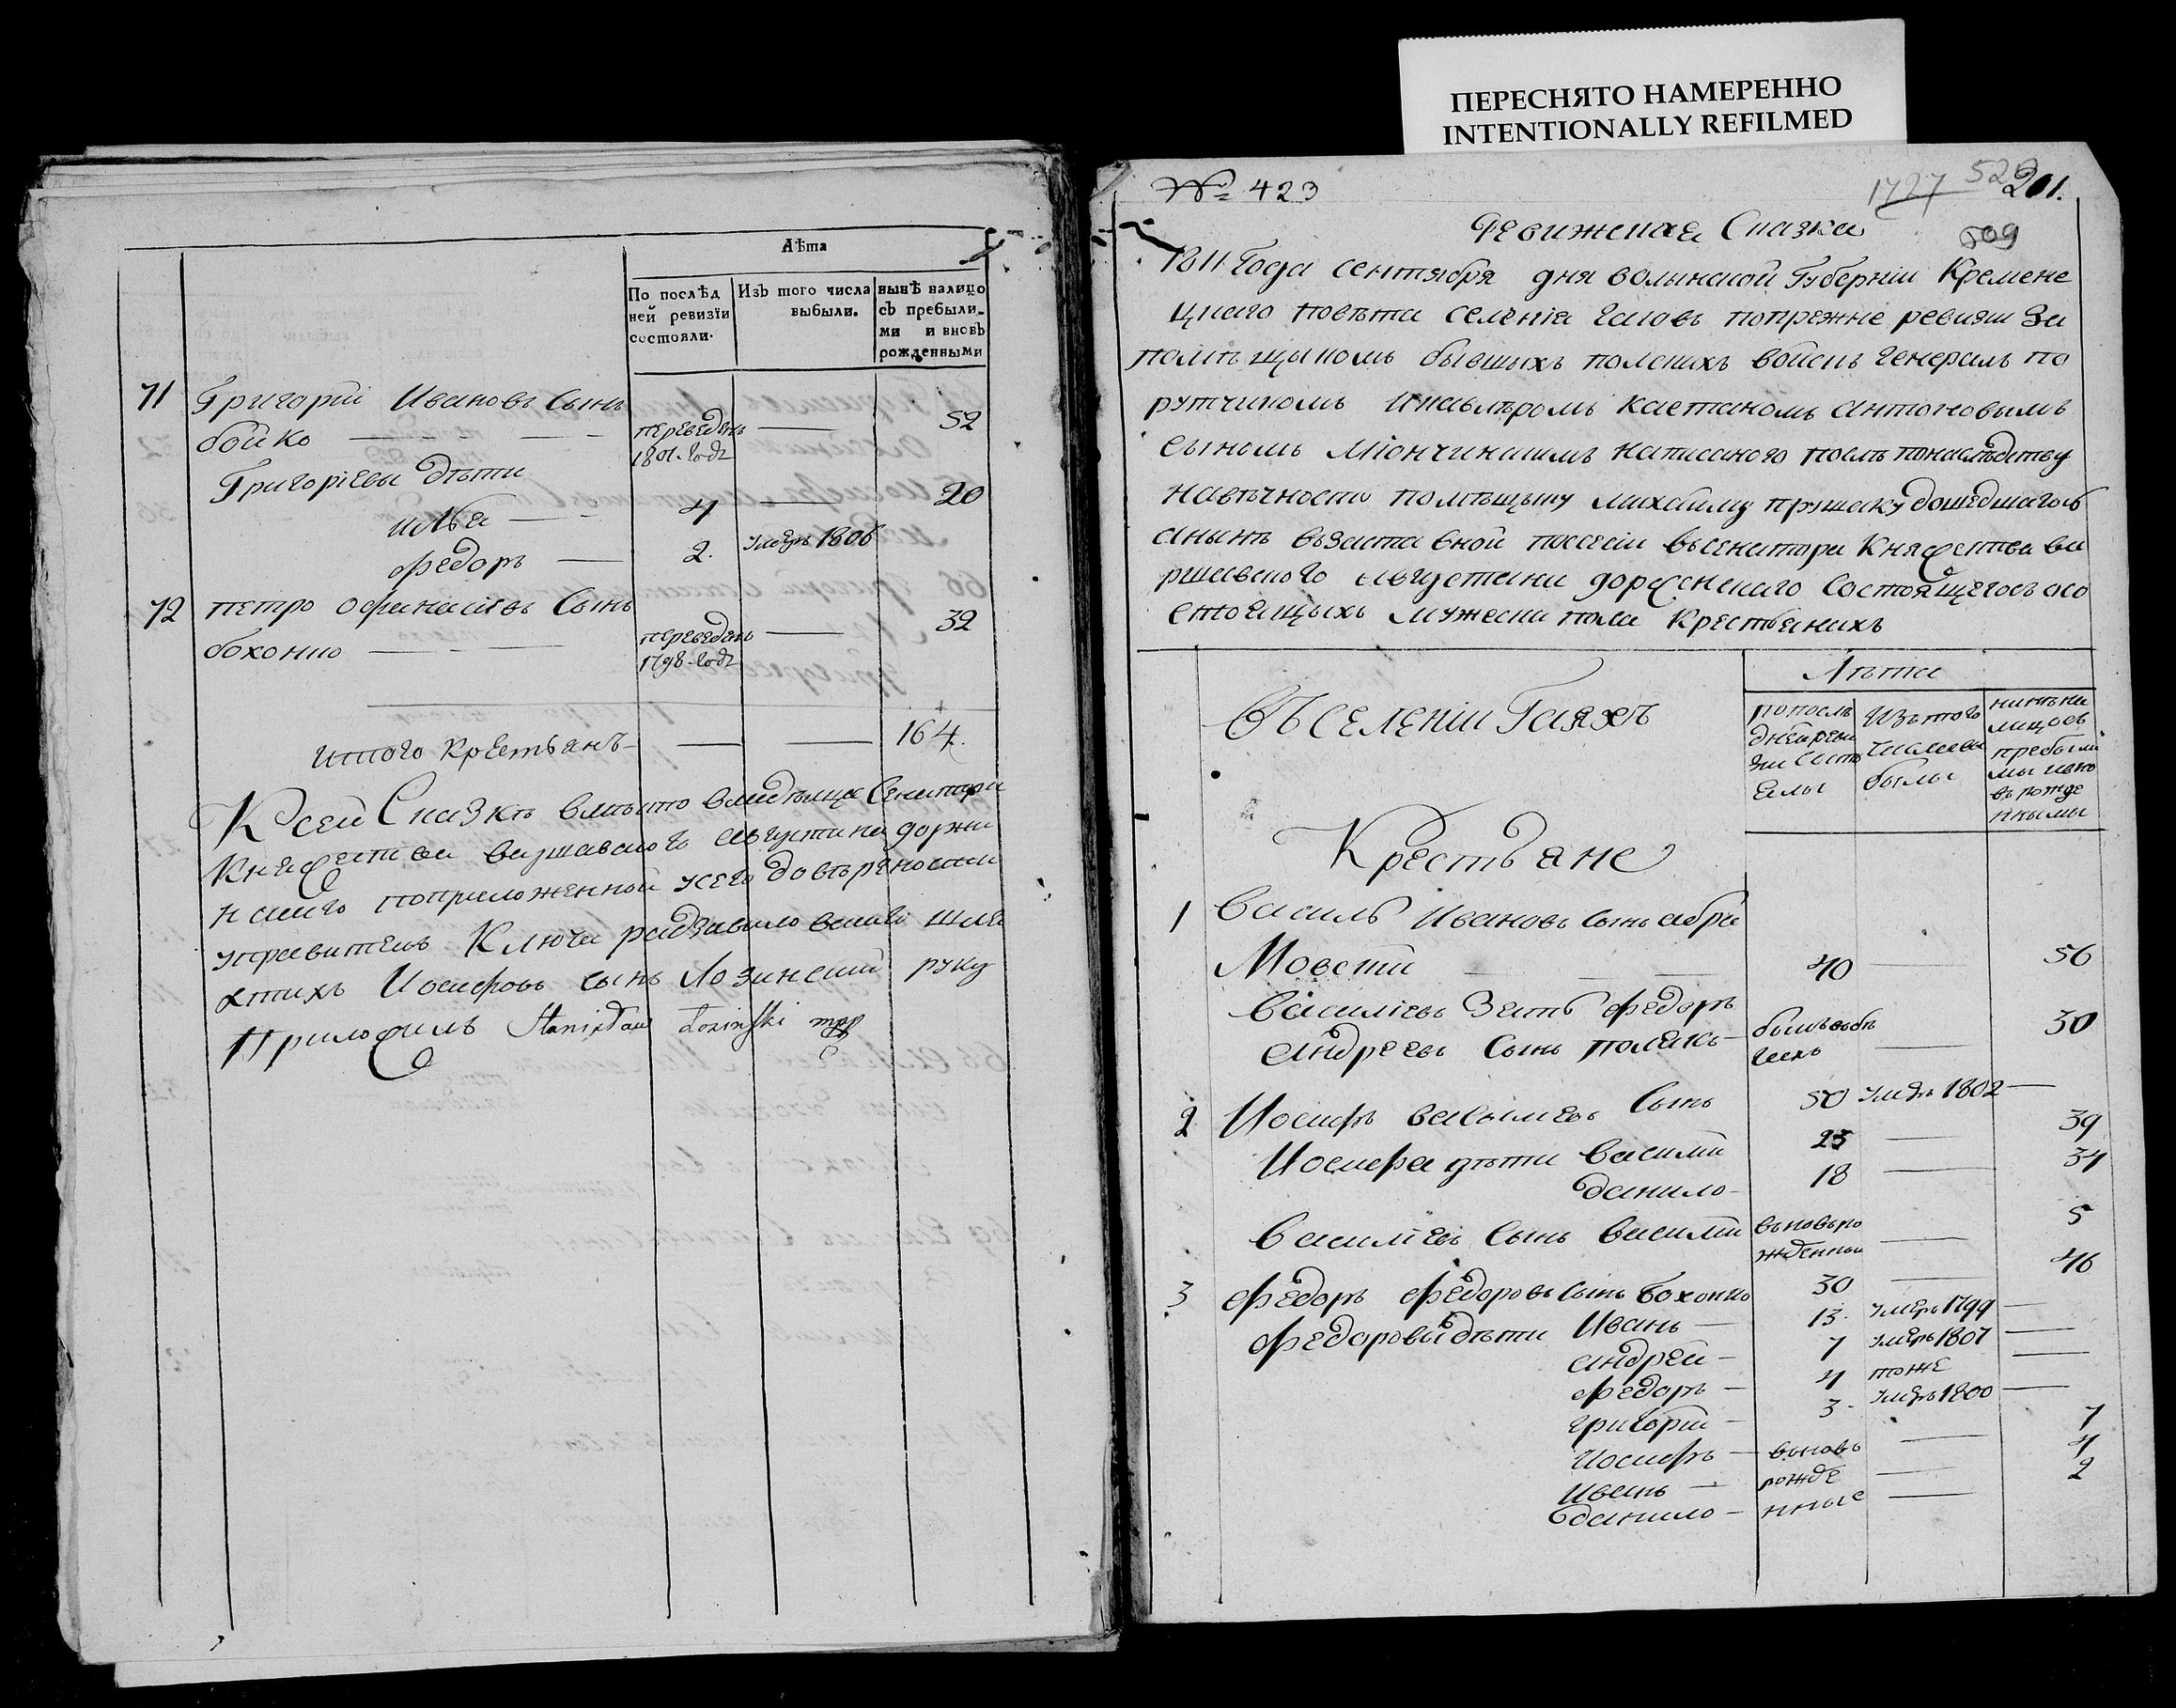 ПЕРЕСНЯТО НАМЕРЕННО
INTENTIONALLY REFILMED
Лѣта
По послѣд
ней ревизїи
состояли.
Изъ того числа
выбыли.
нынѣ налицо
съ пребыли_
ми и вновь
рожденными
71 Григорій Ивановъ Сынъ
бойко — переведенъ 1801. годѣ — 52
Григоріевы дѣти
илья — 4 — 20
федоръ — 2. умеръ 1806
72 петро офанасіевъ Сынъ
бохонко — переведенъ 1798-годѣ — 32
итого крестьянъ — — — 164.
К сей Сказкѣ вмѣсто владѣльца Сенатора
Княжества варшавского августина држи
н ского поприложенной усего довѣренности
управитель Ключа радзивиловского шля
хтичъ Иосифовъ сынъ Лозинский руку
Приложилъ Stanisław Łoziński mpp
№ 423
1727 529 201.
509
Ревижская Сказка
1811 Года сентября дня волынской Губерніи Кремене
цкого повѣта селенія Гаювъ попрежне ревизіи За
помѣщыкомъ бывшыхъ полскихъ войскъ генералъ по
рутчикомъ Икавлѣромъ Каетаномъ антоновымъ
сыномъ Міончинскимъ написаного послѣ понаслѣдству
навѣчность помѣщыку михайлу прушаку дошедшагось
анынѣ въ заставной посесіи въ сенатора Княжества ва
ршавского августина доржснского Состоящегось осо
стоящыхъ мужеска пола Крестьянихъ
Въ селеніи Гаяхъ
Лѣта
попослѣ
дней реви
зіи состо
ялы
Изътого
числа вы
былы
нинѣ на
лицо съ
пребыли
мы ивно
въ рожде
ннымы
Крестьяне
1 Василь Ивановъ сынъ абра
Мовсти — 40 — 56
Василіевъ Зять федоръ
андреевъ Сынъ полякъ — былъ въ бѣ гахъ — 30
2 Иосифъ васылievъ Сынъ 50 умеръ 1802 —
Иосифа дѣти Василій 23 — 39
данило — 18 — 34
Василіевъ сынъ Василій вновь ро жденный — 5
3 федоръ федоровъ сынъ бохонко 30 — 46
федоровы дѣти Иванъ — 13. умеръ 1799 —
андрей — 7 умеръ 1807 —
федоръ — 4 тоже —
григорій — 3. умеръ 1800 —
Иосифъ — вновь — 7
Иванъ — рожде — 4
данило — нные — 2